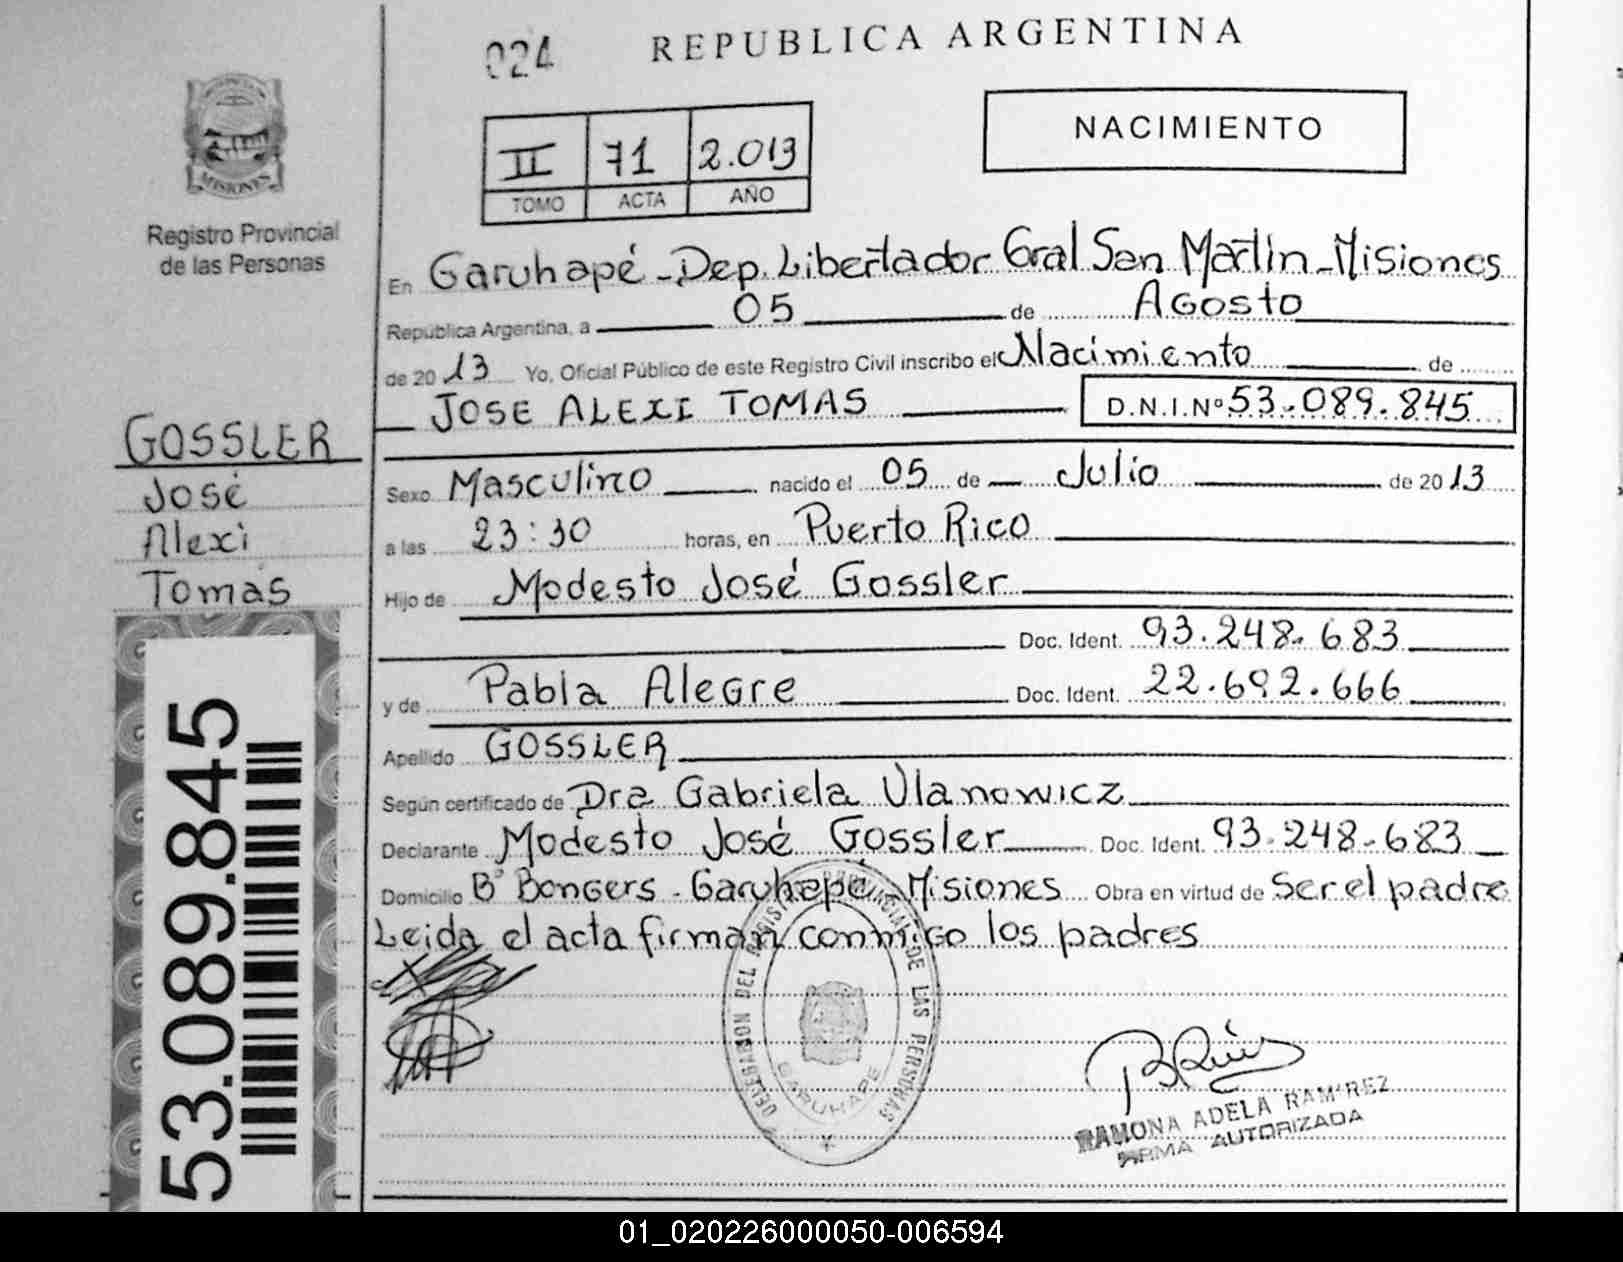 024
REPUBLICA ARGENTINA
II 71 2.013
TOMO ACTA AÑO
NACIMIENTO
MISIONES
Registro Provincial
de las Personas
En Garuhapé - Dep. Libertador Gral San Martin - Misiones
República Argentina, a 05 de Agosto
de 20 13 Yo, Oficial Público de este Registro Civil inscribo el Nacimiento de
JOSE ALEXI TOMAS D.N.I.Nº 53.089.845
GOSSLER
José
Alexi
Tomás
Sexo Masculino nacido el 05 de Julio de 20 13
a las 23:30 horas, en Puerto Rico
Hijo de Modesto José Gossler
Doc. Ident. 93.248.683
y de Pabla Alegre Doc. Ident. 22.692.666
Apellido GOSSLER
Según certificado de Dra Gabriela Ulanowicz
Declarante Modesto José Gossler Doc. Ident. 93.248.683
Domicilio Bº Bongers - Garuhapé Misiones Obra en virtud de Ser el padre
Leida el acta firman conmigo los padres
53.089.845
DELEGACION DEL REGISTRO PROVINCIAL DE LAS PERSONAS
GARUHAPE
RAMONA ADELA RAMIREZ
FIRMA AUTORIZADA
01_020226000050-006594